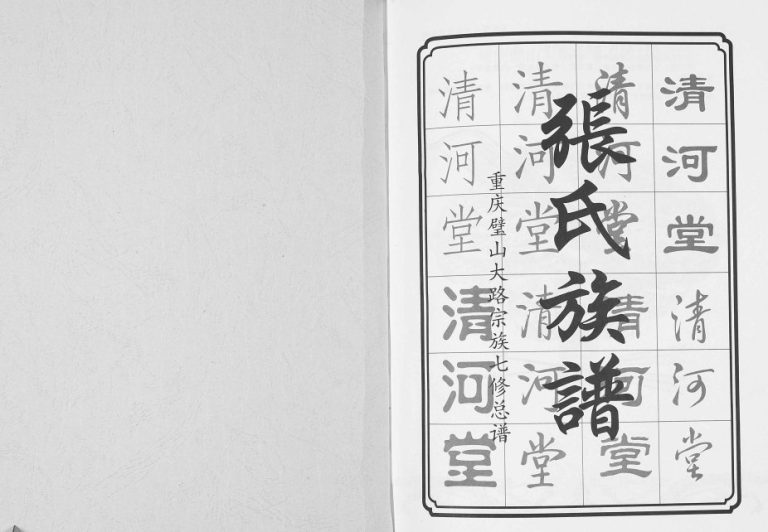 張氏族譜
重庆璧山大路宗族七修总谱
清河堂
清河堂
清河堂
清河堂
清河堂
清河堂
清河堂
清河堂